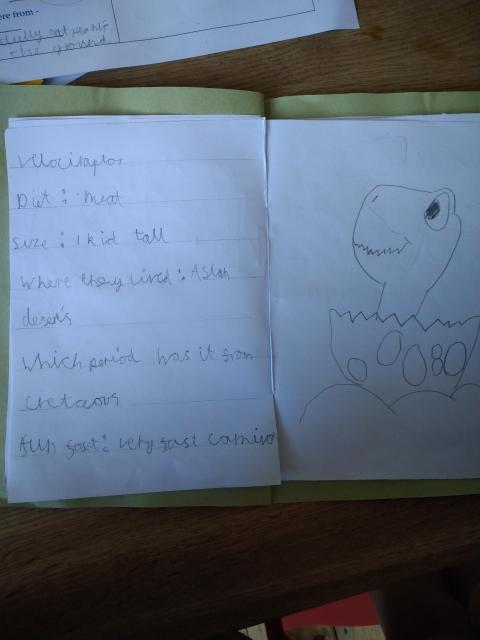 ere from -
efully eat plants
the ground
Velociraptor
Diet : meat
Size : 1 kid tall
Where they lived : Asian
deserts
Which period was it from
Cretaous
fun fact : very fast carnivor